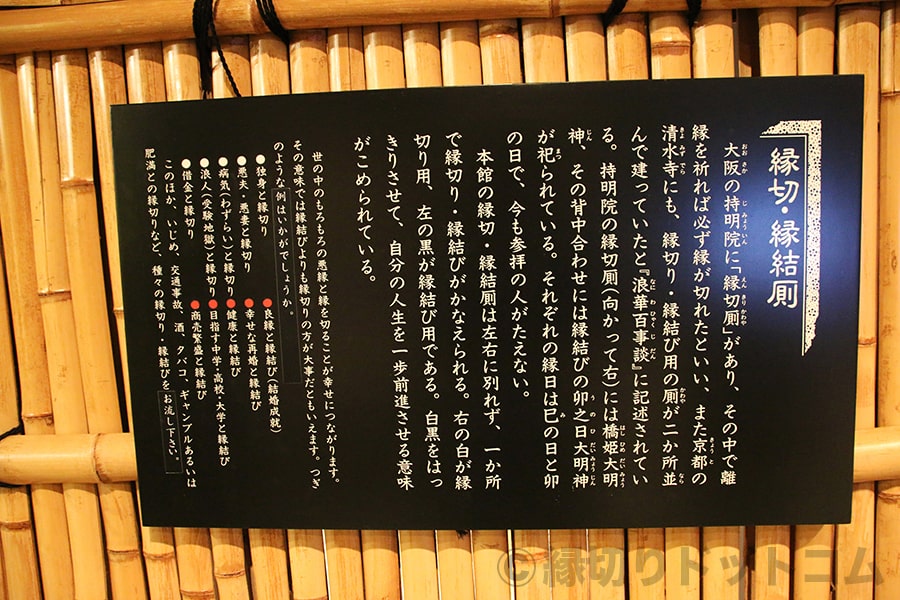 縁切・縁結厠
大阪の持明院に「縁切厠」があり、その中で離
縁を祈れば必ず縁が切れたといい、また京都の
清水寺にも、縁切り・縁結び用の厠が二か所並
んで建っていたと『浪華百事談』に記述されてい
る。持明院の縁切厠(向かって右)には橋姫大明
神、その背中合わせには縁結びの卯之日大明神
が祀られている。それぞれの縁日は巳の日と卯
の日で、今も参拝の人がたえない。
本館の縁切・縁結厠は左右に別れず、一か所
で縁切り・縁結びがかなえられる。右の白が縁
切り用、左の黒が縁結び用である。白黒をはっ
きりさせて、自分の人生を一歩前進させる意味
がこめられている。
世の中のもろもろの悪縁と縁を切ることが幸せにつながります。
その意味では縁結びよりも縁切りの方が大事だともいえます。つぎ
のような例はいかがでしょうか。
●独身と縁切り ●良縁と縁結び(結婚成就)
●悪夫、悪妻と縁切り ●幸せな再婚と縁結び
●病気(わずらい)と縁切り ●健康と縁結び
●浪人(受験地獄)と縁切り ●目指す中学・高校・大学と縁結び
●借金と縁切り ●商売繁盛と縁結び
このほか、いじめ、交通事故、酒、タバコ、ギャンブルあるいは
肥満との縁切りなど、種々の縁切り・縁結びお流し下さい。
©縁切りドットコム